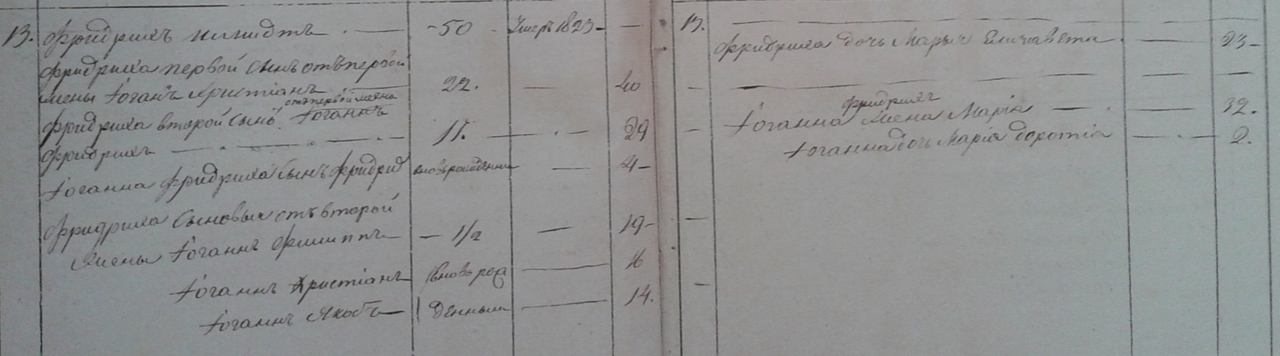 13. Фридрихъ — 50 умеръ 1823 —
Фридриха первой сынъ отъ первой
жены Іоганъ Христіанъ 22. — 40
отъ первой жены
Фридриха второй сынъ Іоганнъ
Фридрихъ — 11. — 29
Іоганна Фридриха сынъ Фридрих вновьрожденны — 4 —
Фридриха сыновья отъ второй
жены Іоганъ Филиппъ — 1/2 — 19 —
Іоганнъ Христіанъ вновь рож — 16
Іоганнъ Якобъ — денныя — 14.
13.
Фридриха дочь Марья Елисавета — 23 —
Фридрих
Іоганна жена Марія — 32.
Іоганна дочь Марія Доротія — 2.